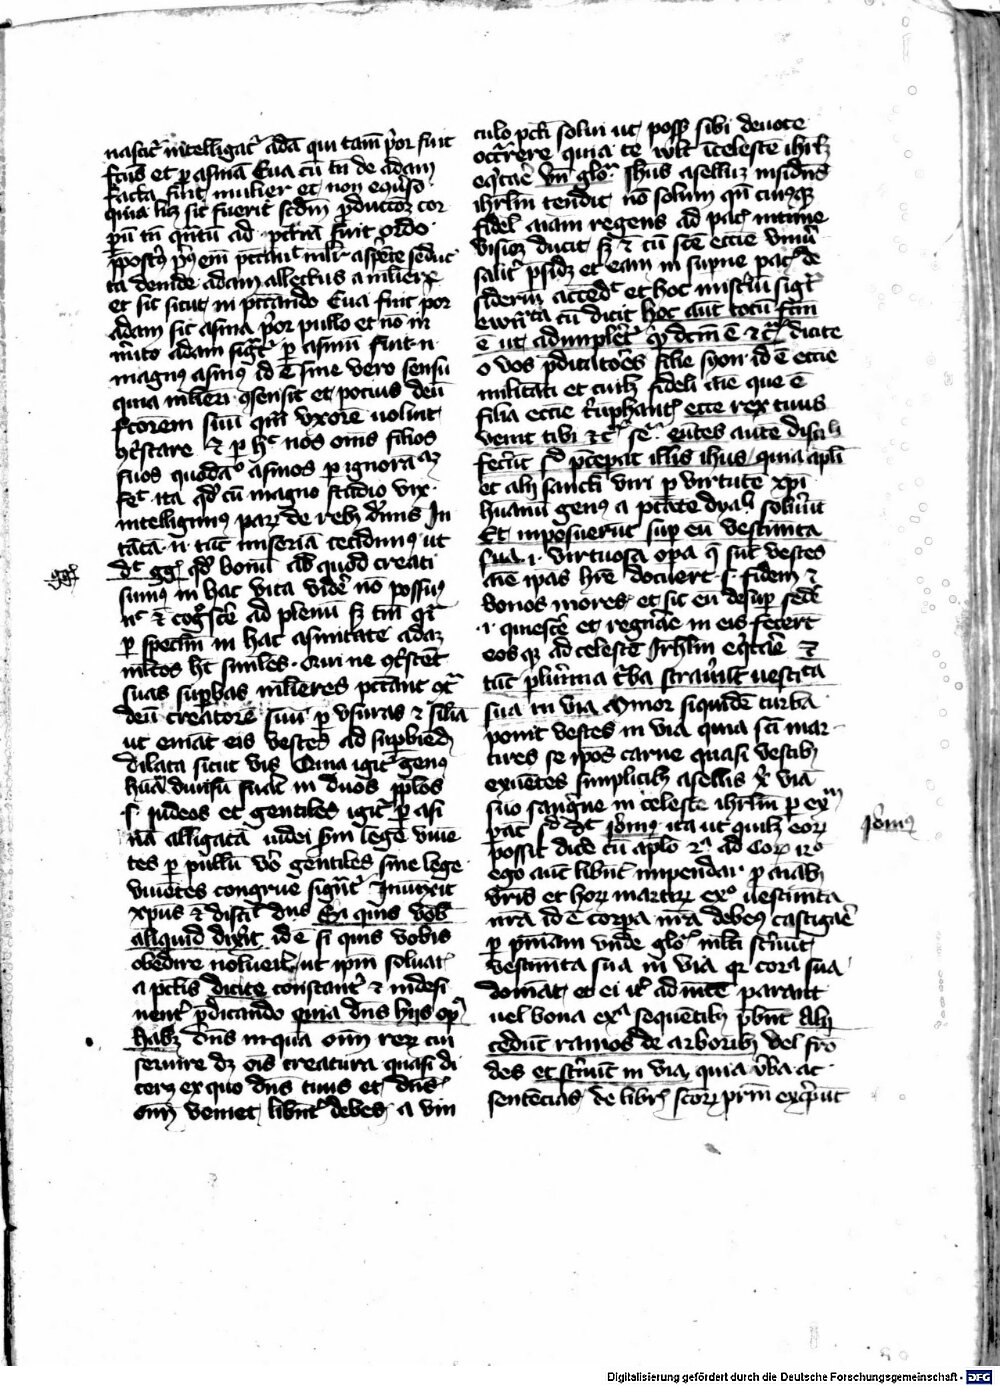 nascit᷑ intelligat᷑ adā qui tam p̄or fuit
fctūs et p asinā Eua cū tn̄ de adam
facta fuit mulier et non eq̄uso
quia lic̄ sic fuerit scdm̄ p̄ductōꝫ cor
pū tn̄ q̄ntū ad fuit ordo
ta deinde adam allectus a muliere
et sic sicut in pctando Eua fuit p̄or
adam sic asina p̄or pullo et nō in
m̄ito adam sigt᷑ p asinū fuit n̄
magnꝰ asinus id ē sine vero sensu
quia mlieri ꝯsensit et pocius deū
fctorem suū qm̄ vxorē uoluit
ꝯt̄stare et p hc̄ nos om̄s filios
suos quodāo asinos p ignorā
fec̄ ita qd̄ cū magno studio vix
intelligimꝰ parꝝ de rebꝫ dīnis In
tātā n̄ tūc miseriā cecidimꝰ ut
dt̄ gg᷑ qd̄ bonū ad quod creati
sumꝰ in hac vita videre nō possumꝰ
nc̄ ⁊ cogsce᷑ ad plenū sꝫ tm̄ qr̄
p specłm in hac asinitate adaz
mltos ht̄ similes Qui ne ꝯt̄stent
suas supbas mlieres pctant ꝯt᷑
deū creatorē suū p vsuras ⁊ filia
ut emāt eis vestes ad supbiedꝫ
dilata sicut vis Quia igit᷑ genꝰ
huā diuisū fuit in duos pplos
s iudeos et gentiles igit᷑ p asi
nā alligatā iudei sm̄ legē viue
tes p pullū v̄o gentiles sine lege
viuētes congrue sigt᷑ Inuixit
xp̄us ⁊ discit dn̄s Et quis vob
aliquid dix̄it id ē si quis vobis
obedire noluerit ut ipm̄ soluat᷑
a pctis dicite constant᷑ ⁊ indesi
nent᷑ p̄dicando quia dn̄s hijs op᷑
habꝫ dn̄s inqua om̄ rerꝝ cui
seruire dꝫ oīs creatura quasi di
cerꝫ ex quo dn̄s tuus et dn̄s
om̄ veniet libnt᷑ debes a vin
gg᷑
culo pcti solui ut possꝫ sibi deuote
occ̄rere quia te vult ī celestē ihrlꝫ
eq̄tare Vn̄ glo᷑ Ihūs aselluꝫ insidns
ihrlm̄ tendit nō solum qn̄ cuiꝰqꝫ
fidel᷑ aīam regens ad pac᷑ intime
visioꝫ ducit sꝫ ⁊ cū sctē eccīe vniu᷑
salit᷑ p̄sidꝫ et eam in supne pac᷑ de
sideriū accēdt᷑ et hoc mist̄iū sigt᷑
ewn̄ta cū dicit hoc aut totū fcm̄
ē ut adimplet᷑ qd̄ dcm̄ ē ⁊c᷑ dicite
o vos p̄dicatōes filie syon id ē eccīe
militāti et cuilꝫ fideli aīe que ē
filia eccīe t̄uphant᷑ ecce rex tuus
venit tibi ⁊c᷑ se᷑ eūtes aūte discili
fecer̄t sic p̄cepat illis ihus quia apłi
et alij sancti viri p virtutē xpī
huānū genꝰ a ptāte dyabł soluerūt
Et inposuerūt sup eū vestimta
sua i virtuosa opa q̄ sūt vestes
aīe ipas hr̄e docuer̄t s fidem ⁊
bonos mores et sic eū desup sede᷑
i quiescē et regnāe in eis fecer̄t
eos qꝫ ad celestē Ihrlm̄ eq̄tare ⁊
tūc plur̄ima t̄ba straueūt uestita
sua in via Amor siquidē turba
ponit vestes in via quia sct̄i mar
tires se ipōs carne quasi vestibꝫ
exuētes simplicibꝫ asellis xp̄ viā
suo sanguīe in celeste ihrlm̄ p exm̄
parāt sic dt̄ Iōmus ita ut quilꝫ eorꝝ
possit dicē cū aplo 2a ad Cor 12o
ego aūt libnt᷑ impendar p aīabꝫ
vris et horꝝ martirꝝ exo uestimta
nra id ē corpa nra debemꝰ castigare
p pnīam vnde glo᷑ mlti st̄uūt
vestimta sua in via qr cora sua
domāt et ei it᷑ ad mētē parant
uel bona exa sequētibꝫ p̄bent Alij
cedūt ramos de arboribꝫ vel fro
des et st̄uūt in via quia v̄ba ac
sentēcias de libris sctorꝝ prm̄ exc̄punt
Iōmus
Digitalisierung gefördert durch die Deutsche Forschungsgemeinschaft - DFG